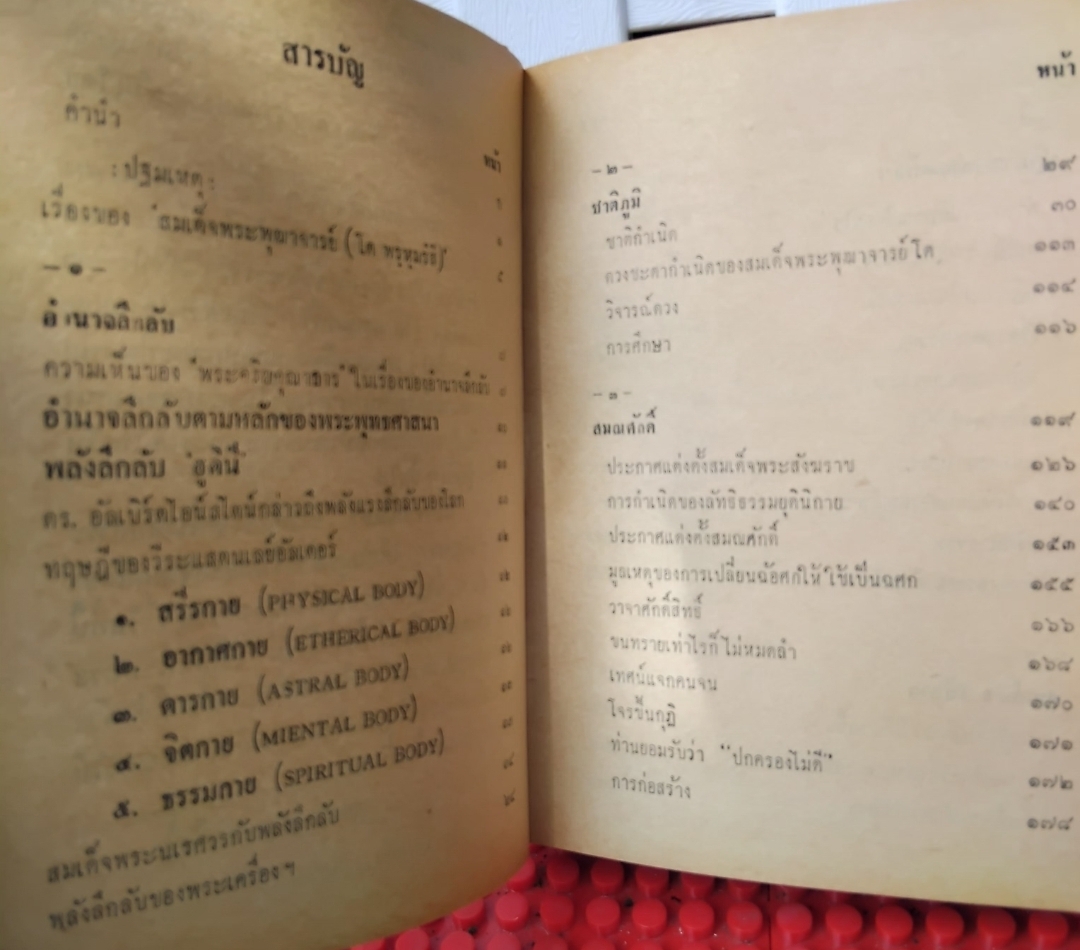 สารบัญ
คำนำ
หน้า
: ปฐมเหตุ :
เรื่องของ "สมเด็จพระพุฒาจารย์ (โต พรฺหฺมรํธี)"
– ๑ –
๕
อำนาจลึกลับ
ความเห็นของ ในเรื่องของอำนาจลึกลับ
อำนาจลึกลับตามหลักของพระพุทธศาสนา
พลังลึกลับ "ฮูดินี่"
ดร. อัลเบิร์ตไอน์สไตน์กล่าวถึงพลังแรงลึกลับของโลก
ทฤษฎีของวีระแสตนเลย์อัลเดอร์
๑. สรีรกาย (PHYSICAL BODY)
๒. อากาศกาย (ETHERICAL BODY)
๓. ดารกาย (ASTRAL BODY)
๔. จิตกาย (MIENTAL BODY)
๕. ธรรมกาย (SPIRITUAL BODY)
สมเด็จพระนเรศวรกับพลังลึกลับ
พลังลึกลับของพระเครื่องฯ
หน้า
– ๒ –
๒๙
ชาติภูมิ
๓๐
ชาติกำเนิด
๑๑๓
ดวงชะตากำเนิดของสมเด็จพระพุฒาจารย์โต
๑๑๔
วิจารณ์ดวง
๑๑๖
การศึกษา
– ๓ –
สมณศักดิ์
๑๑๙
ประกาศแต่งตั้งสมเด็จพระสังฆราช
๑๒๖
การกำเนิดของลัทธิธรรมยุตินิกาย
๑๔๐
ประกาศแต่งตั้งสมณศักดิ์
๑๕๓
มูลเหตุของการเปลี่ยนฉ้อศกให้ใช้เป็นฉศก
๑๕๕
วาจาศักดิ์สิทธิ์
๑๖๖
ขนทรายเท่าไรก็ไม่หมดลำ
๑๖๘
เทศน์แจกคนจน
๑๗๐
โจรขึ้นกุฏิ
๑๗๑
ท่านยอมรับว่า "ปกครองไม่ดี"
๑๗๒
การก่อสร้าง
๑๗๘